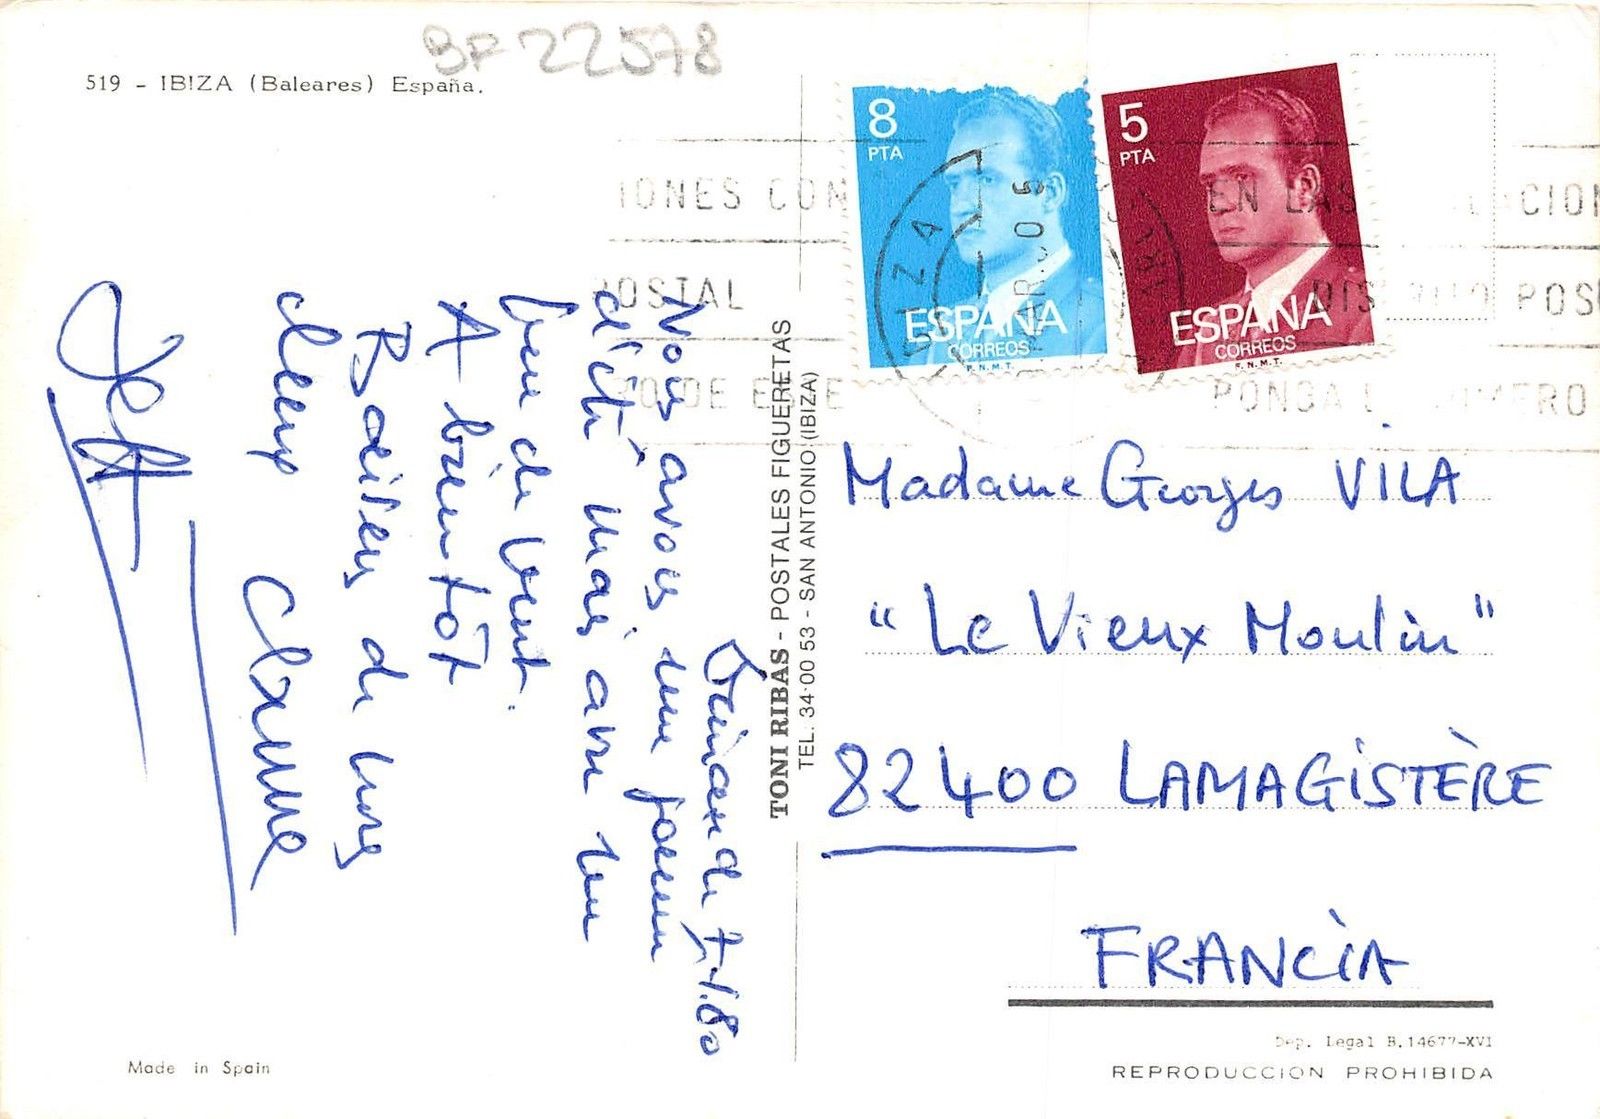 BF 22578
519 - IBIZA (Baleares) España.
8
PTA
ESPAÑA
CORREOS
F. N. M. T.
5
PTA
ESPAÑA
CORREOS
F. N. M. T.
IONES CON
POSTAL
DE ESTE
EN LAS
POS
PONGA
IBIZA
Dimanche 7.1.80
Nous avons une journée
d'été mais avec un
peu de vent.
A bientôt
Baisers de nous
deux Claude
Jeff
TONI RIBAS - POSTALES FIGUERETAS
TEL. 34·00 53 - SAN ANTONIO (IBIZA)
Madame Georges VILA
"Le Vieux Moulin"
82400 LAMAGISTÈRE
FRANCIA
Made in Spain
Dep. Legal B.14677-XVI
REPRODUCCION PROHIBIDA